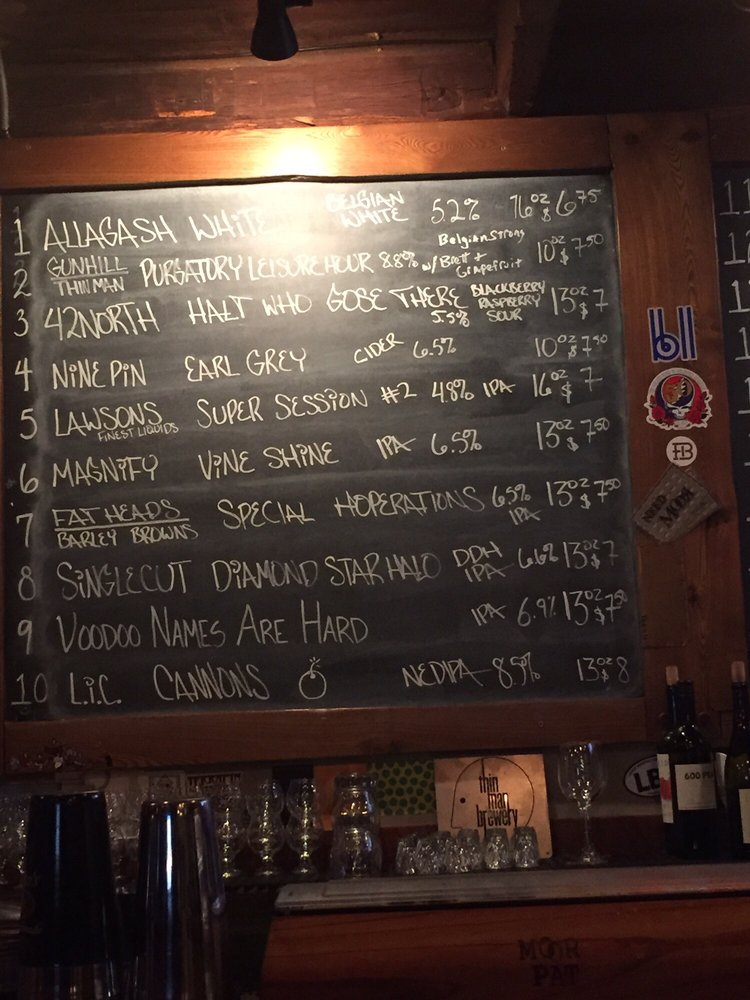 1 ALLAGASH WHITE BELGIAN WHITE 5.2% 16OZ $6.75
2 GUNHILL THIN MAN PURGATORY LEISURE HOUR 8.8% Belgian Strong w/ Brett + Grapefruit 10OZ $7.50
3 42NORTH HALT WHO GOSE THERE 5.5% BLACKBERRY RASPBERRY SOUR 13OZ $7
4 NINE PIN EARL GREY CIDER 6.5% 10OZ $7.50
5 LAWSONS FINEST LIQUIDS SUPER SESSION #2 4.8% IPA 16OZ $7
6 MAGNIFY VINE SHINE IPA 6.5% 13OZ $7.50
7 FAT HEADS BARLEY BROWNS SPECIAL HOPERATIONS 6.5% IPA 13OZ $7.50
8 SINGLECUT DIAMOND STAR HALO DDH IPA 6.6% 13OZ $7
9 VOODOO NAMES ARE HARD IPA 6.9% 13OZ $7.50
10 L.I.C. CANNONS NEDIPA 8.5% 13OZ $8
11
12
FB
thin
man
brewery
LB
600
MOOR
PAT